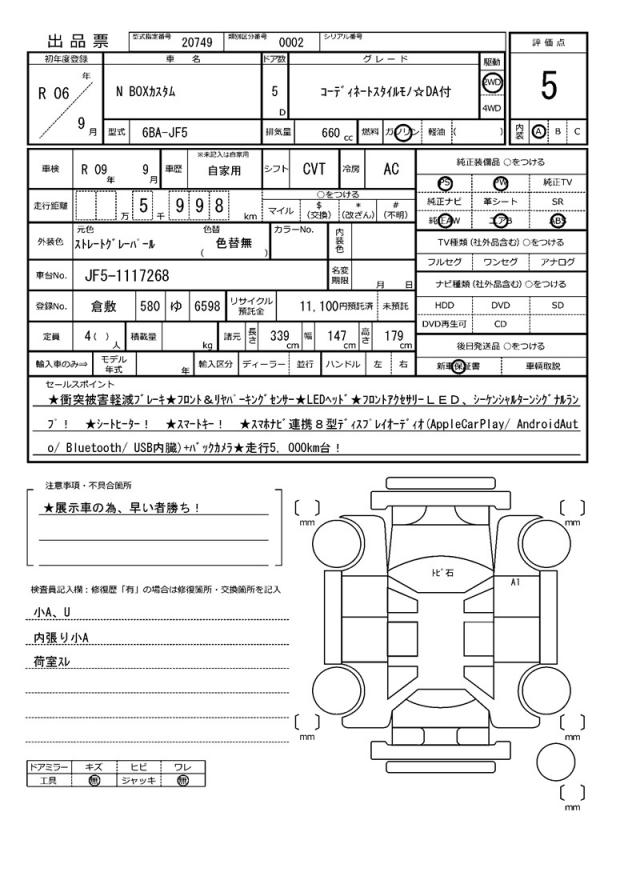 出品票 型式指定番号 20749 類別区分番号 0002 シリアル番号
初年度登録 車名 ドア数 グレード 駆動 評価点
R 06 年 9 月 N BOXカスタム 5 D コーディネートスタイルモノ☆DA付 2WD 4WD 5
型式 6BA-JF5 排気量 660 cc 燃料 ガソリン 軽油 ( ) 内装 A B C
車検 R 09 年 9 月 車歴 ※未記入は自家用 自家用 シフト CVT 冷房 AC
走行距離 万 5 千 9 9 8 km ○をつける マイル $ (交換) * (改ざん) # (不明)
外装色 元色 ストレートグレーパール 色替 ( 色替無 ) カラーNo. 内装色
車台No. JF5-1117268 名変期限 月 日
登録No. 倉敷 580 ゆ 6598 リサイクル預託金 11,100円預託済 未預託
定員 4( ) 人 積載量 kg 諸元 長さ 339 cm 幅 147 cm 高さ 179 cm
輸入車のみ⇒ モデル年式 年 輸入区分 ディーラー 並行 ハンドル 左 右
純正装備品 ○をつける
PS PW 純正TV
純正ナビ 革シート SR
純正AW エアB ABS
TV種類 (社外品含む) ○をつける
フルセグ ワンセグ アナログ
ナビ種類 (社外品含む) ○をつける
HDD DVD SD
DVD再生可 CD
後日発送品 ○をつける
新車保証書 車輌取説
セールスポイント
★衝突被害軽減ブレーキ★フロント&リヤパーキングセンサー★LEDヘッド★フロントアクセサリーLED、シーケンシャルターンシグナルラン
プ! ★シートヒーター! ★スマートキー! ★スマホナビ連携8型ディスプレイオーディオ(AppleCarPlay/ AndroidAut
o/ Bluetooth/ USB内臓)+バックカメラ★走行5,000km台!
注意事項・不具合箇所
★展示車の為、早い者勝ち!
検査員記入欄:修復歴「有」の場合は修復箇所・交換箇所を記入
小A、U
内張り小A
荷室スレ
ドアミラー キズ ヒビ ワレ
工具 無 ジャッキ 無
[ ] mm [ ] mm
トビ石
A1
[ ] mm [ ] mm
[ ] mm